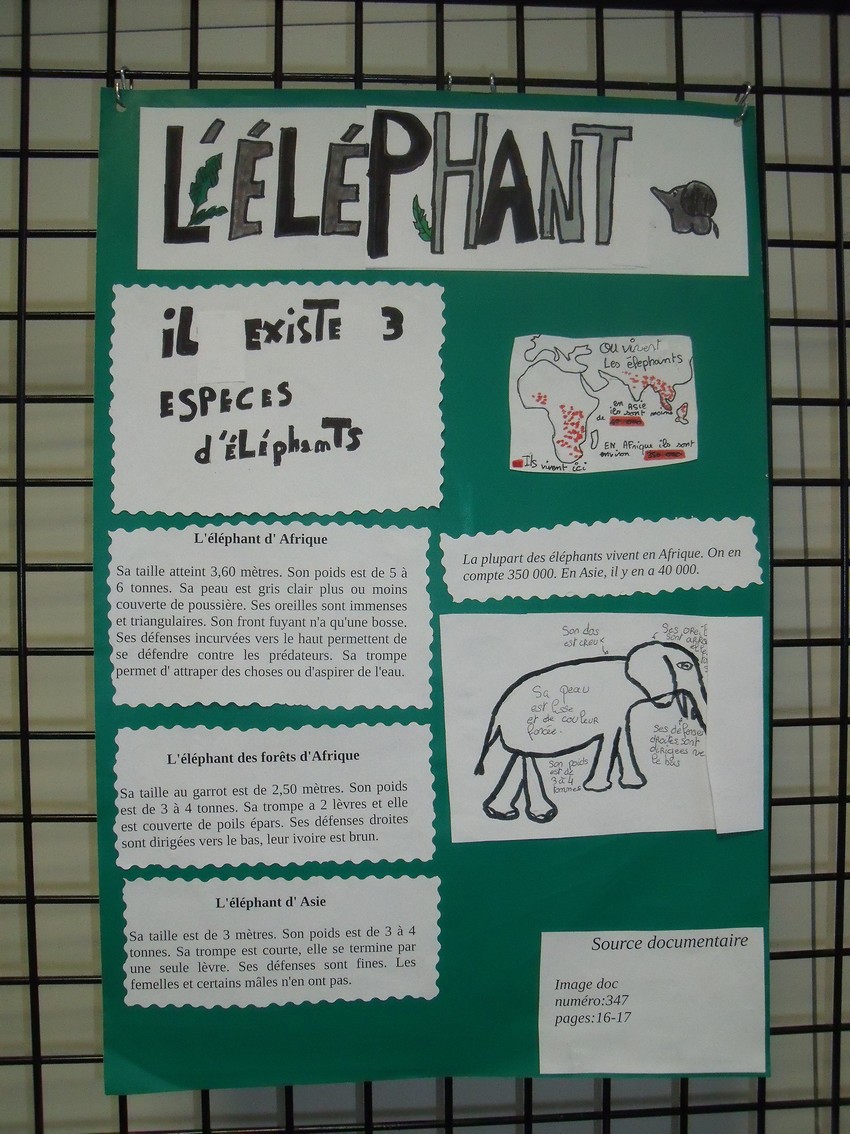 L'ÉLÉPHANT
il EXISTE 3
ESPECES
d'ÉLÉphAmTS
Où vivent
Les éléphants
EN ASIE
ils sont moins
de
EN AFrique ils sont
environ
Ils vivent ici
L'éléphant d' Afrique
Sa taille atteint 3,60 mètres. Son poids est de 5 à
6 tonnes. Sa peau est gris clair plus ou moins
couverte de poussière. Ses oreilles sont immenses
et triangulaires. Son front fuyant n'a qu'une bosse.
Ses défenses incurvées vers le haut permettent de
se défendre contre les prédateurs. Sa trompe
permet d' attraper des choses ou d'aspirer de l'eau.
La plupart des éléphants vivent en Afrique. On en
compte 350 000. En Asie, il y en a 40 000.
Son dos
est creux
Ses
sont
Sa peau
est lisse
et de couleur
foncée.
Son poids
est de
3 à 4
tonnes
Ses défenses
droites sont
dirigées ve
le bas
L'éléphant des forêts d'Afrique
Sa taille au garrot est de 2,50 mètres. Son poids
est de 3 à 4 tonnes. Sa trompe a 2 lèvres et elle
est couverte de poils épars. Ses défenses droites
sont dirigées vers le bas, leur ivoire est brun.
L'éléphant d' Asie
Sa taille est de 3 mètres. Son poids est de 3 à 4
tonnes. Sa trompe est courte, elle se termine par
une seule lèvre. Ses défenses sont fines. Les
femelles et certains mâles n'en ont pas.
Source documentaire
Image doc
numéro:347
pages:16-17